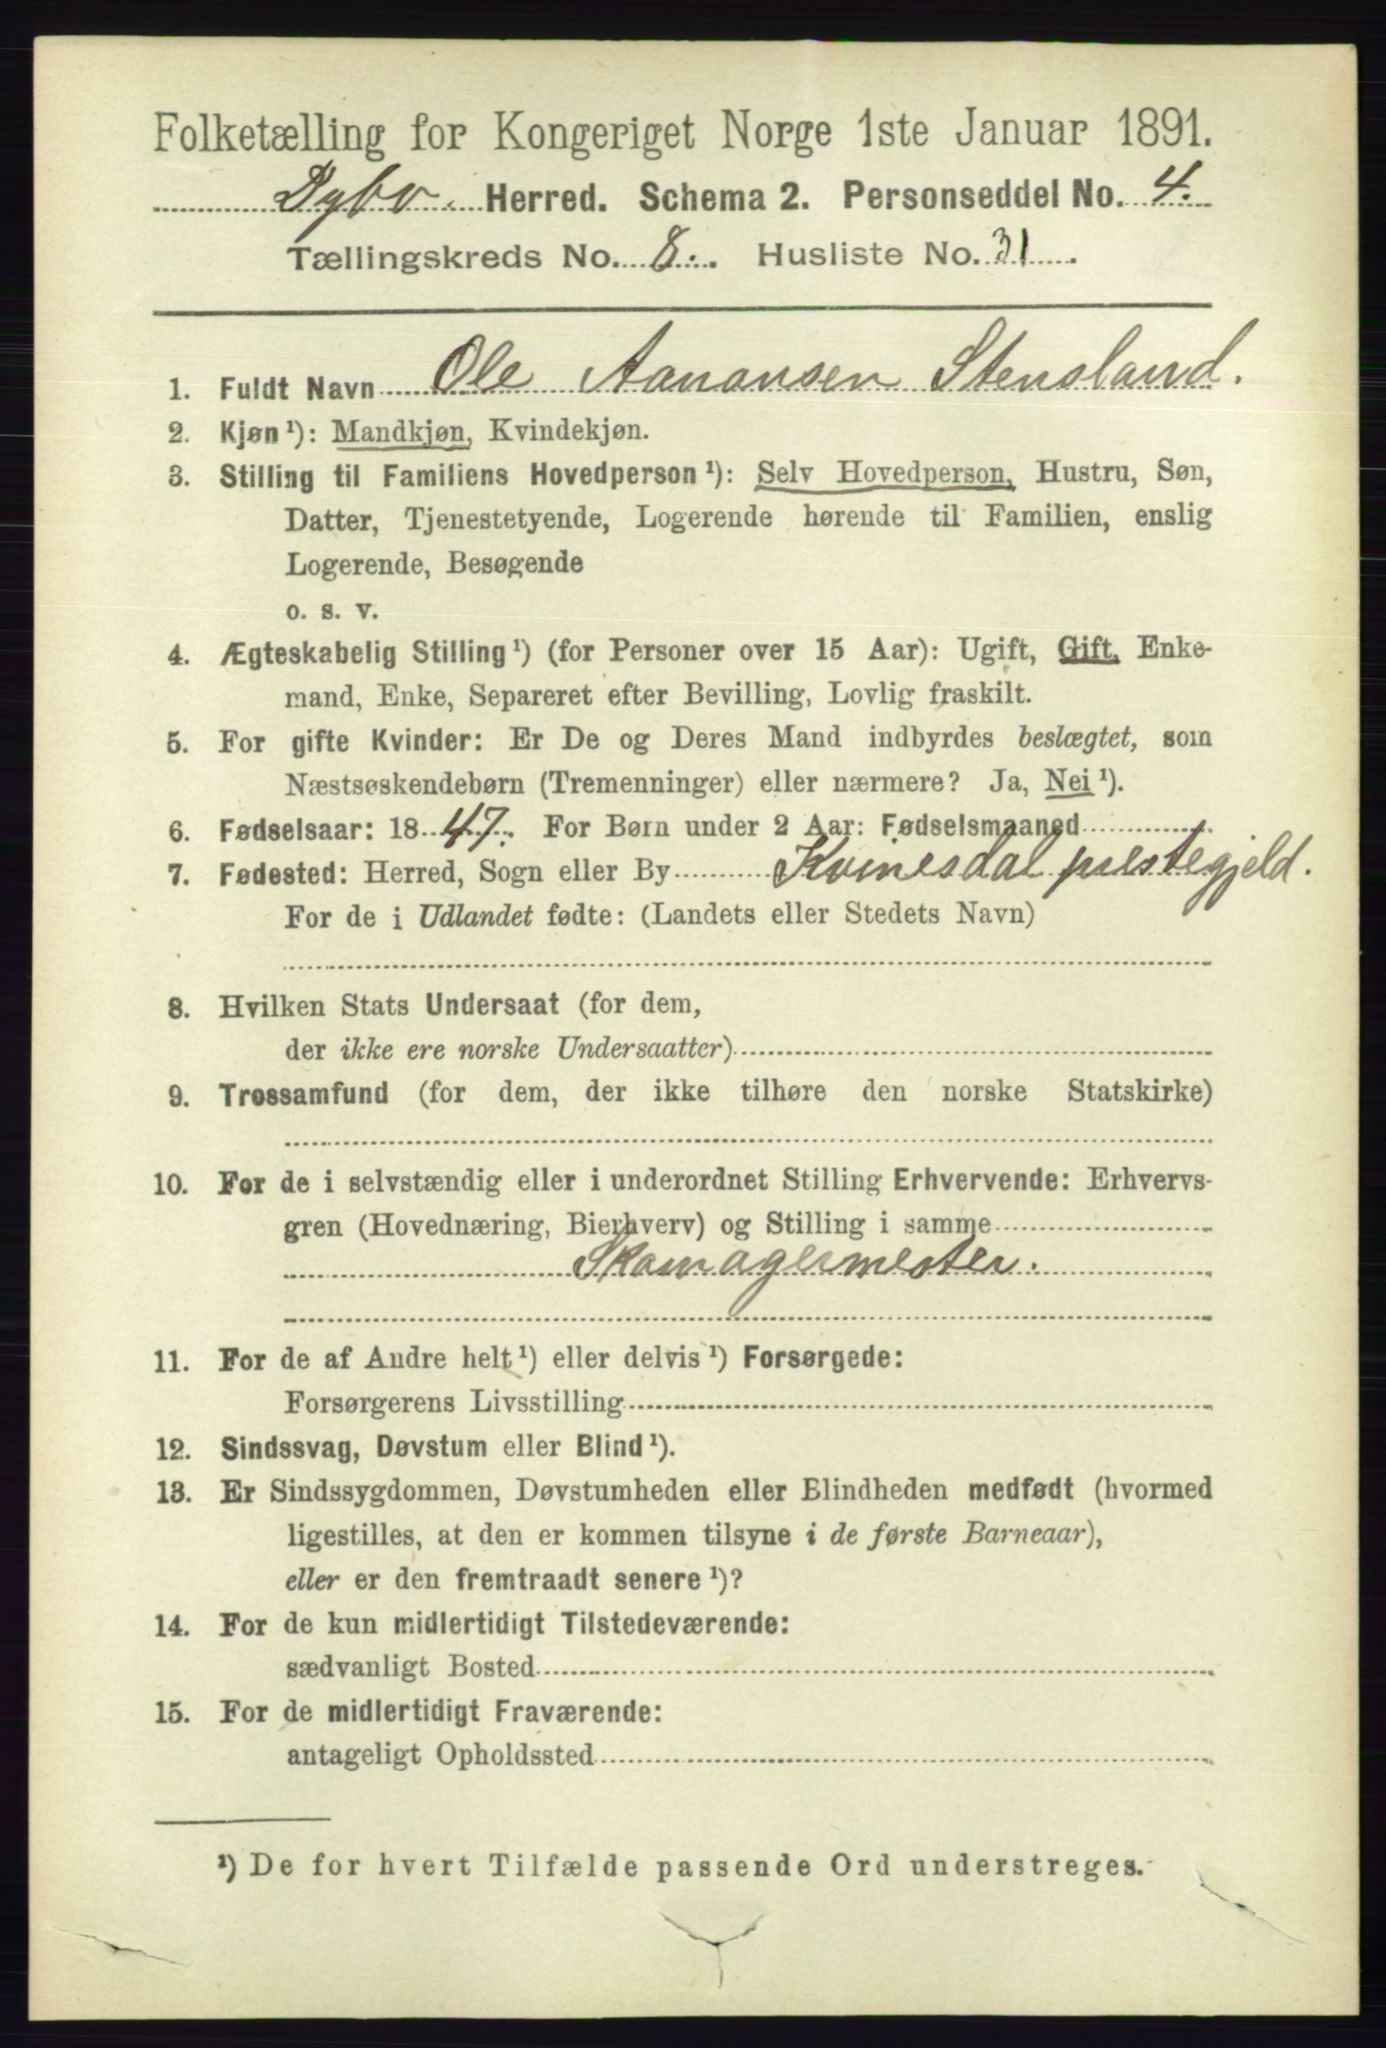 Folketælling for Kongeriget Norge 1ste Januar 1891.
Dybo. Herred. Schema 2. Personseddel No. 4.
Tællingskreds No. 8. Husliste No. 31.
1. Fuldt Navn Ole Aanansen Stensland.
2. Kjøn ¹): Mandkjøn, Kvindekjøn.
3. Stilling til Familiens Hovedperson ¹): Selv Hovedperson, Hustru, Søn,
Datter, Tjenestetyende, Logerende hørende til Familien, enslig
Logerende, Besøgende
o. s. v.
4. Ægteskabelig Stilling ¹) (for Personer over 15 Aar): Ugift, Gift, Enke-
mand, Enke, Separeret efter Bevilling, Lovlig fraskilt.
5. For gifte Kvinder: Er De og Deres Mand indbyrdes beslægtet, som
Næstsøskendebørn (Tremenninger) eller nærmere? Ja, Nei ¹).
6. Fødselsaar: 1847. For Børn under 2 Aar: Fødselsmaaned
7. Fødested: Herred, Sogn eller By Kvinesdal prestegjeld.
For de i Udlandet fødte: (Landets eller Stedets Navn)
8. Hvilken Stats Undersaat (for dem,
der ikke ere norske Undersaatter)
9. Trossamfund (for dem, der ikke tilhøre den norske Statskirke)
10. For de i selvstændig eller i underordnet Stilling Erhvervende: Erhvervs-
gren (Hovednæring, Bierhverv) og Stilling i samme
Skomagermester.
11. For de af Andre helt ¹) eller delvis ¹) Forsørgede:
Forsørgerens Livsstilling
12. Sindssvag, Døvstum eller Blind ¹).
13. Er Sindssygdommen, Døvstumheden eller Blindheden medfødt (hvormed
ligestilles, at den er kommen tilsyne i de første Barneaar),
eller er den fremtraadt senere ¹)?
14. For de kun midlertidigt Tilstedeværende:
sædvanligt Bosted
15. For de midlertidigt Fraværende:
antageligt Opholdssted
¹) De for hvert Tilfælde passende Ord understreges.